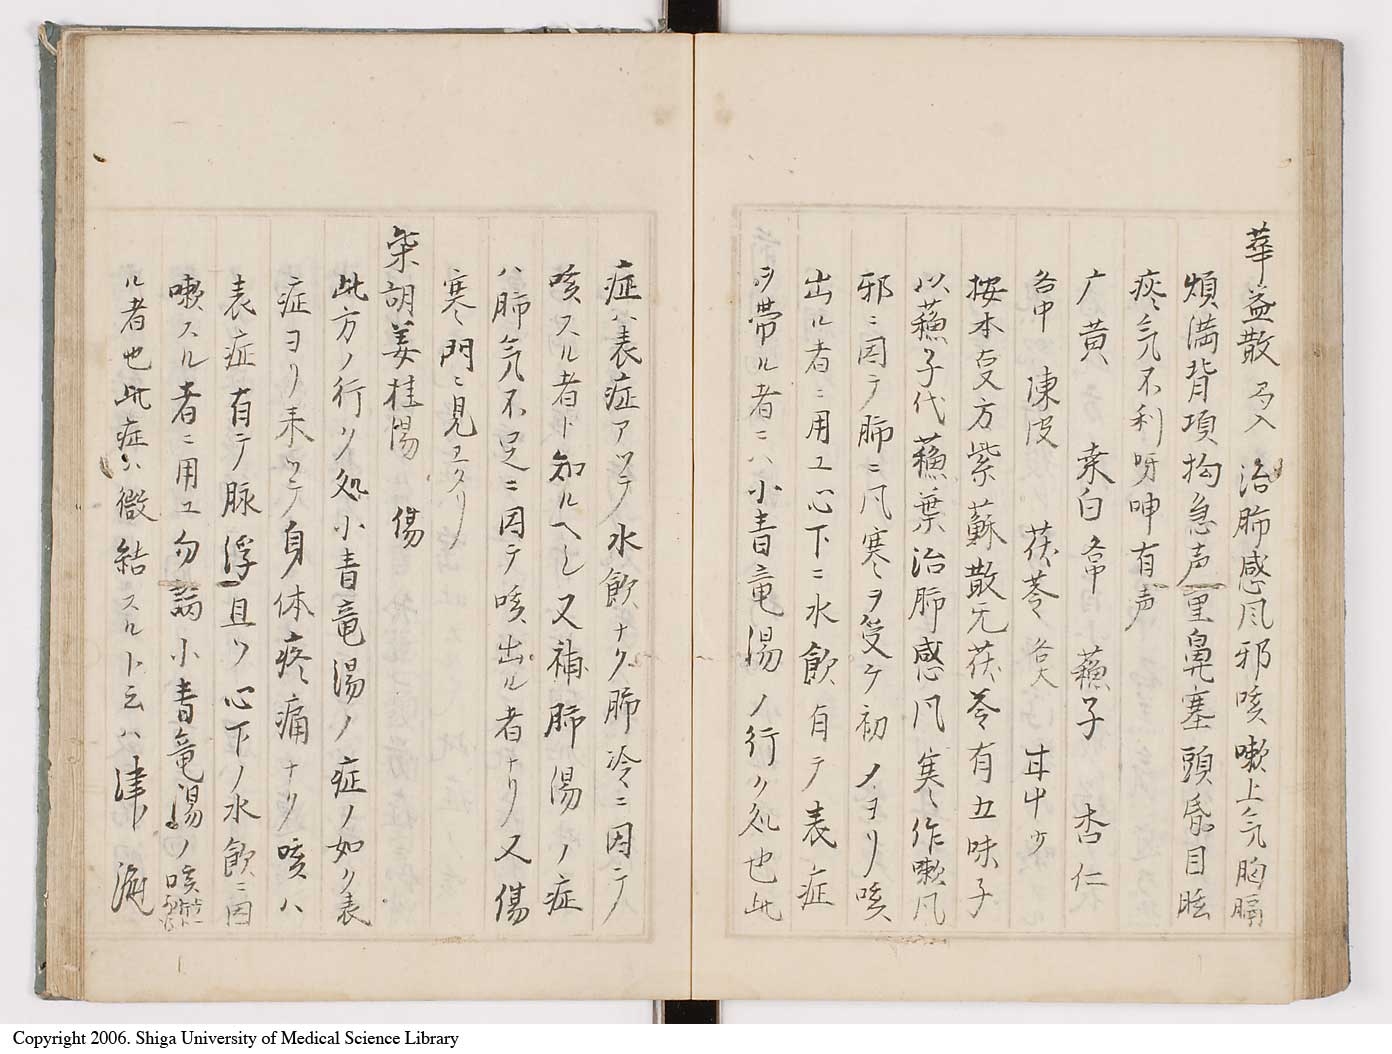 華盖散 局入 治肺感风邪咳嗽上气胸膈
煩満背項拘急声重鼻塞頭昏目眩
痰气不利呀呷有声
广黄 桒白 各中 蘓子 杏仁
各中 陳皮 茯苓 各大 甘中少
按本草方紫蘇散无茯苓有五味子
以蘓子代蘓葉治肺感风寒作嗽风
邪ニ因テ肺ニ风寒ヲ受ケ初ノヨリ咳
出ル者ニ用ユ心下ニ水飲有テ表症
ヲ帯ル者ニハ小青竜湯ノ行ク処也此
症ハ表症アツテ水飲ナク肺冷ニ因テノ
咳スル者ト知ルヘし又補肺湯ノ症
ハ肺氣不足ニ因テ咳出ル者ナリ又傷
寒門ニ見エタリ
柴胡姜桂湯 傷
此方ノ行ク処小青竜湯ノ症ノ如ク表
症ヨリ来ツテ身体疼痛ナク咳ハ
表症有テ脉浮且ツ心下ノ水飲ニ因
嗽スル者ニ用ユ勿論小青竜湯ノ咳
ル者也此症ハ微結スルト云ハ津液
Copyright 2006. Shiga University of Medical Science Library